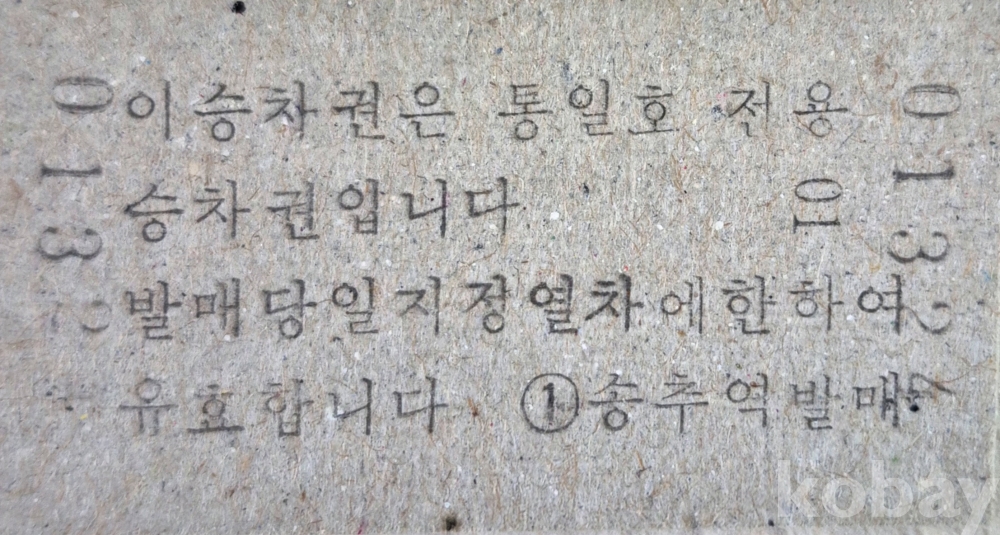 이승차권은 통일호 전용
승차권입니다 01
발매당일지정열차에한하여
유효합니다 ①송추역발매
013
0132
kobay